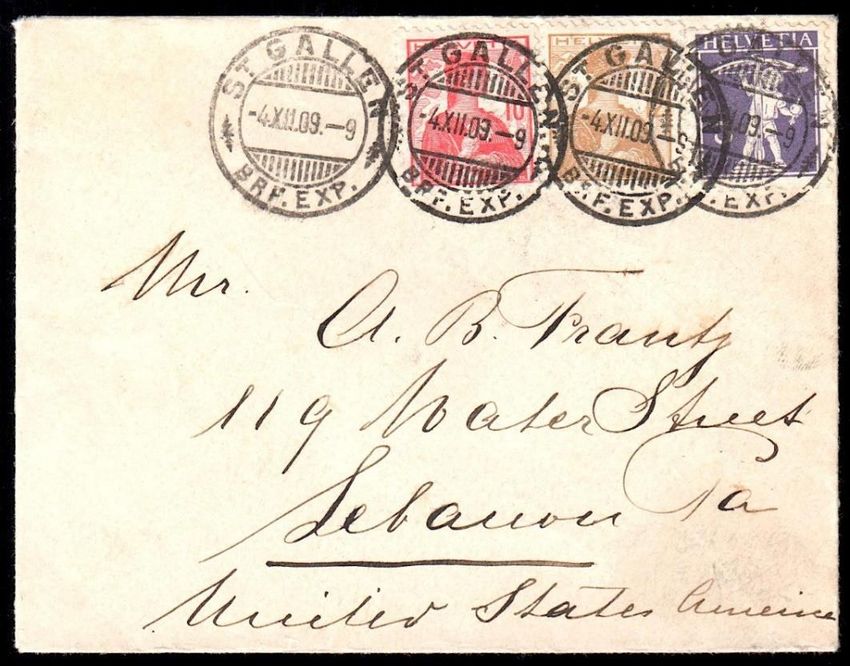 ST. GALLEN
-4.XII.09.-9
BRF. EXP.
HELVETIA
10
ST. GALLEN
-4.XII.09.-9
BRF. EXP.
HELVETIA
ST. GALLEN
-4.XII.09.-9
BRF. EXP.
HELVETIA
09.-9
EXP.
Mr.
A. B. Frantz
119 Water Street
Lebanon Pa
United States America